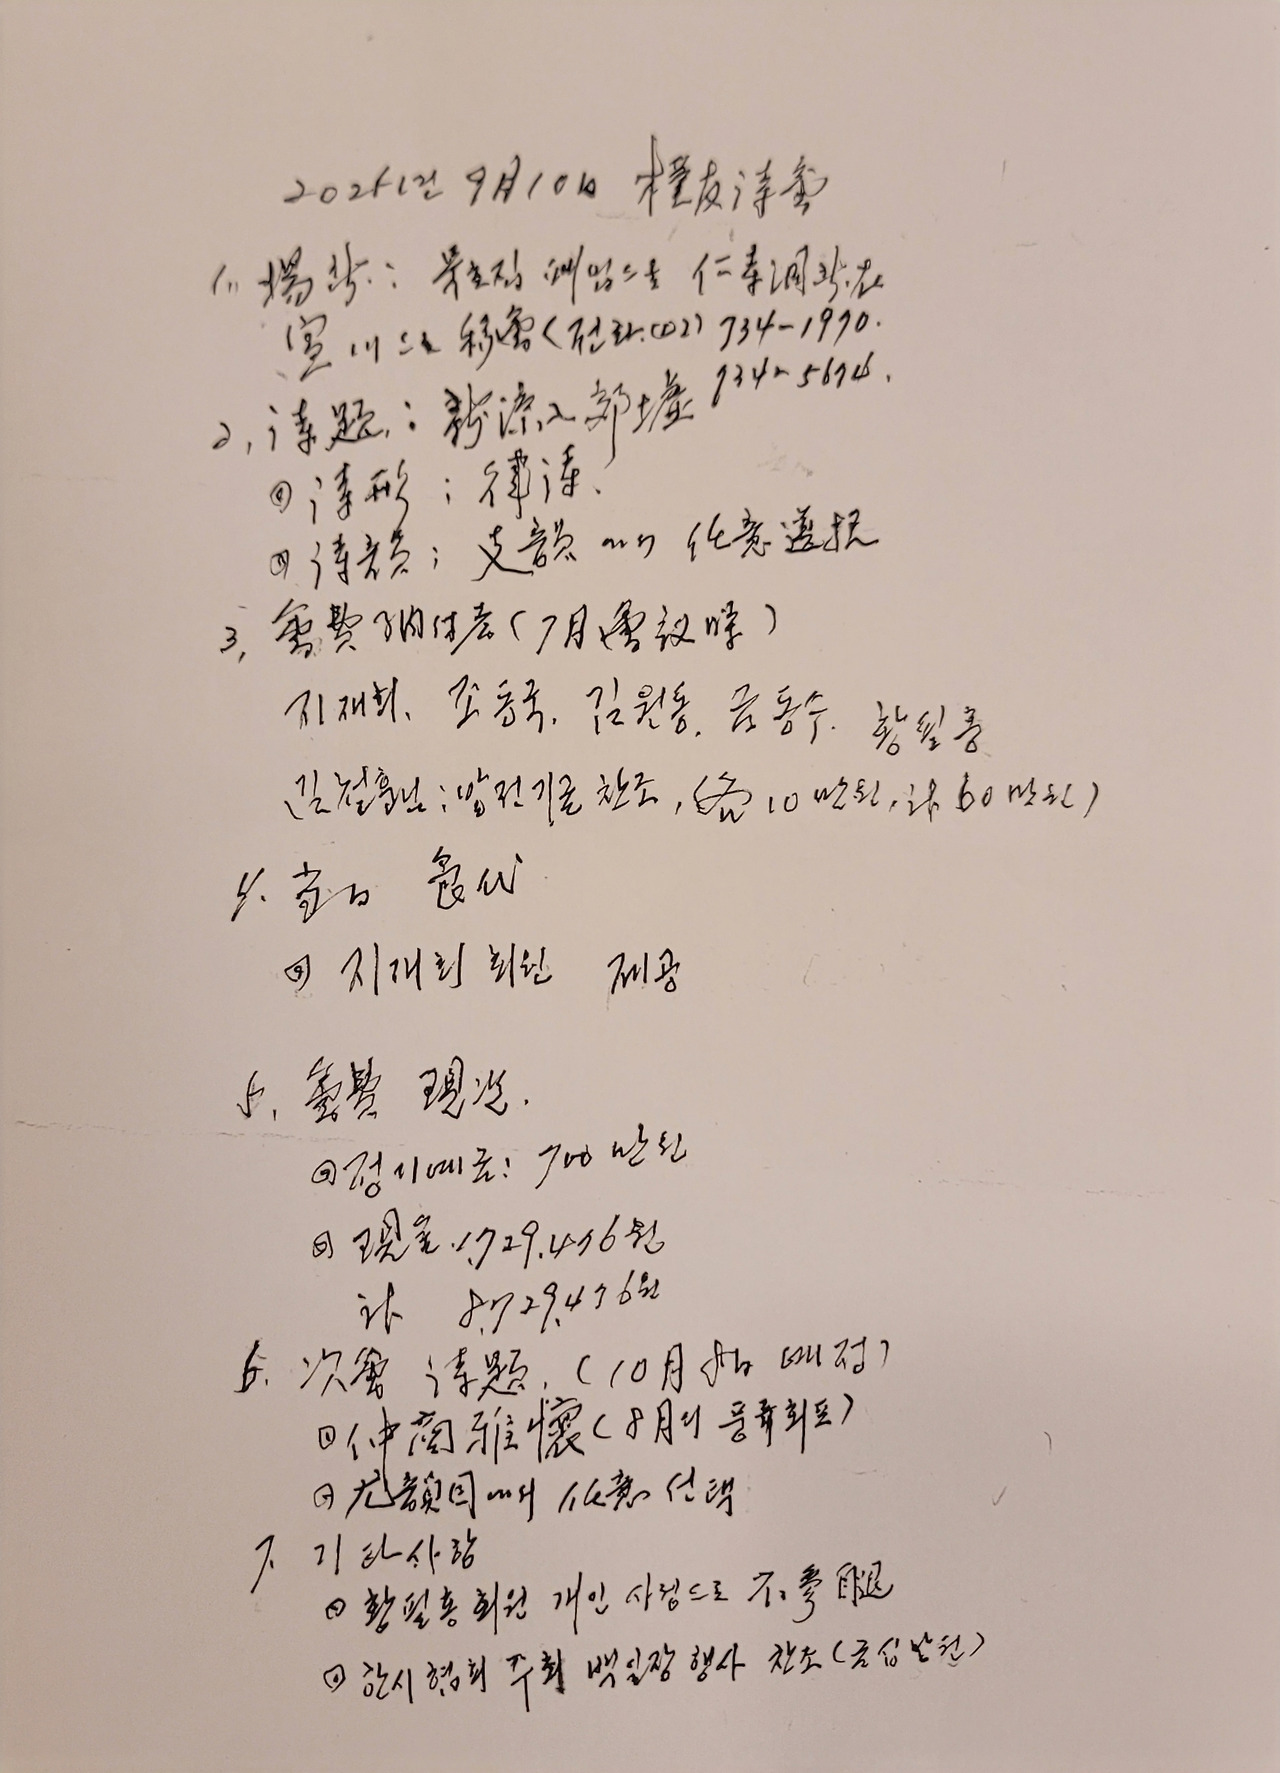 2025년 9月10日 樸友詩會
1. 場所: 폐업으로 仁寺洞 所在
宜川으로 移會(전화.02) 734-1970.
734-5674.
2, 詩題,: 新凉入郊墟
◎ 詩形 : 律詩.
◎ 詩韻 : 支韻에서 任意選択
3, 會費 納付者(7月會議時)
지재희, 조동국, 김원동, 금동수. 황필홍
(김철호님: 발전기금 찬조, (各 10만원, 計 60만원)
4. 当日 食代
◎ 지재희 회원 제공
5. 會費 現況.
◎정기예금: 700만원
◎ 現金.1,729.476원
計 8,729,476원
6. 次會 詩題. (10月 8日 예정)
◎仲商雅懷(8月의 풍류회포)
◎尤韻目에서 任意 선택
7. 기타사항
◎ 황필홍회원 개인 사정으로 不參
◎ 한시협회 주최 백일장 행사 찬조(금십만원)